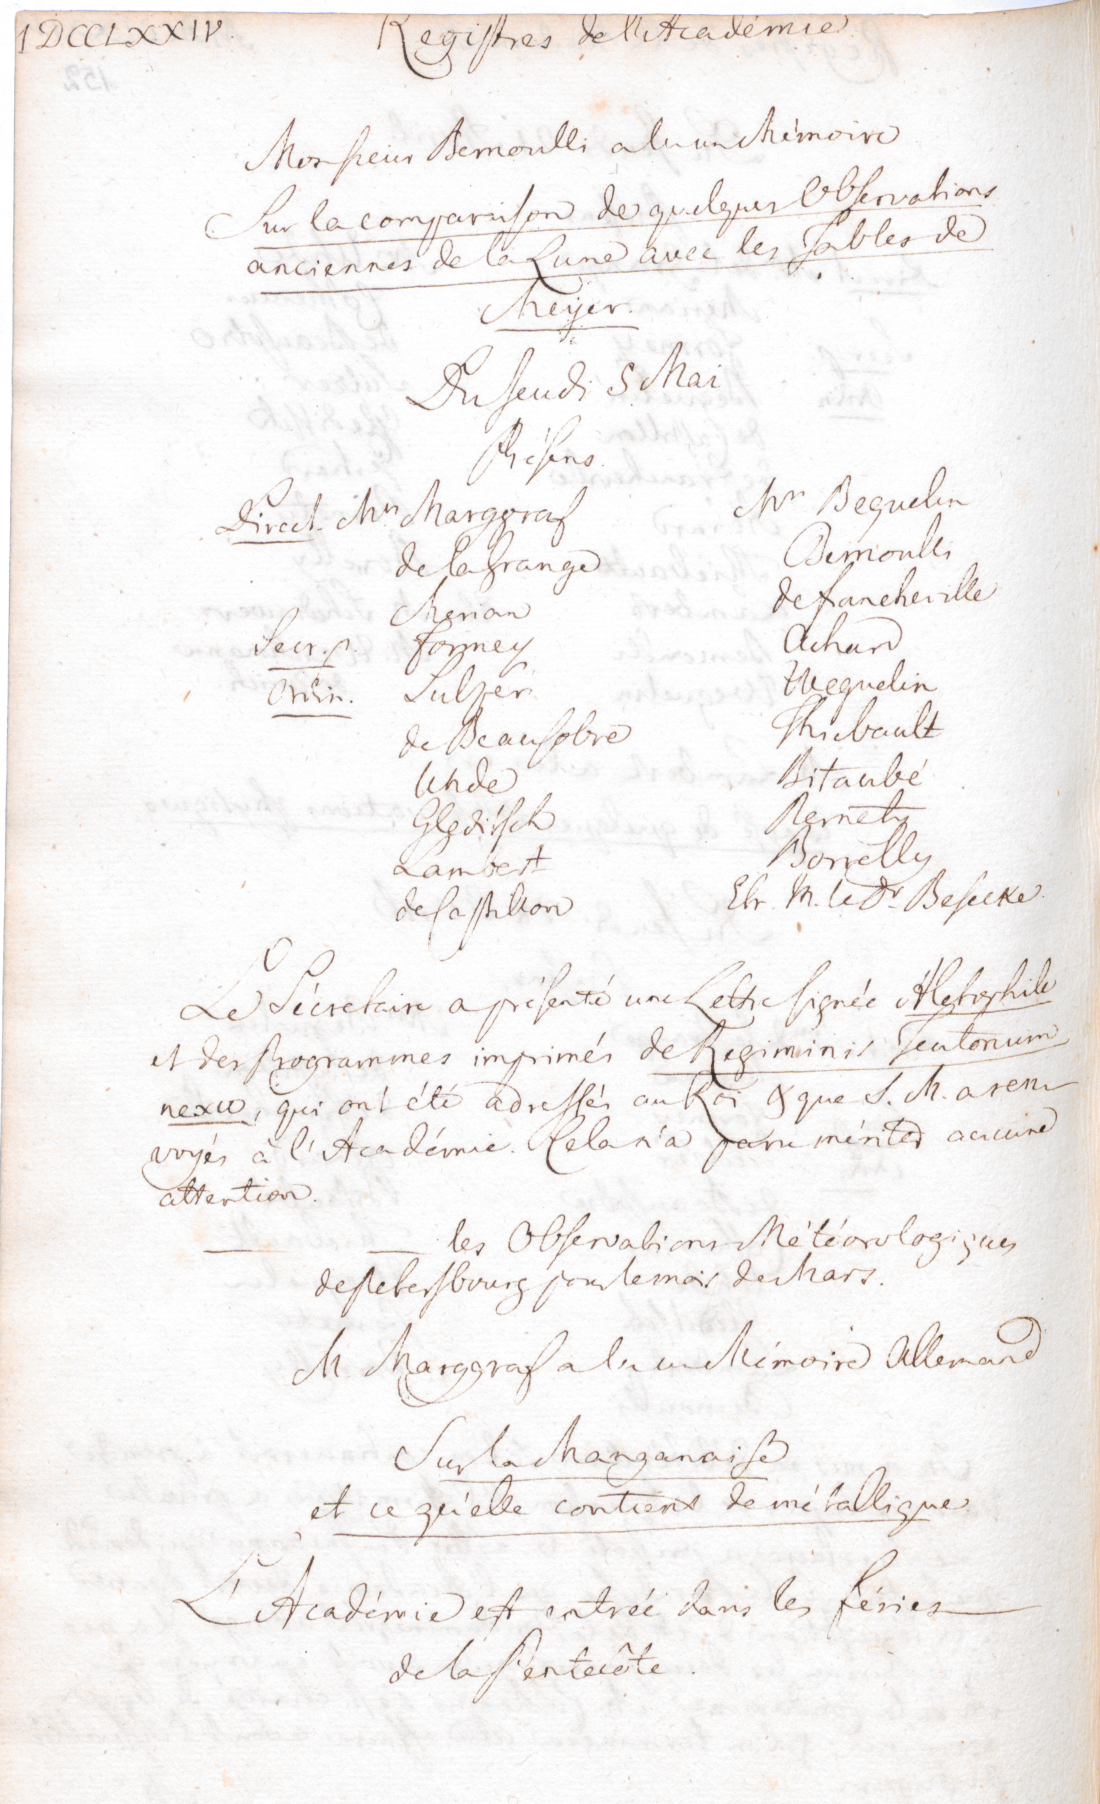 MDCCLXXIV. Registres de l'Académie
Monsieur Bernoulli a lu un Mémoire
Sur la comparaison de quelques Observations
anciennes de la Lune avec les Tables de
Meyer.
Du Jeudi 5 Mai
Présens.
Direct. Mrs Marggraf
de la Grange
Merian
Secr. p. Formey
Ordin. Sulzer
de Beausobre
Uhde
Gleditsch
Lambert
de Castillon
Mrs Beguelin
Bernoulli
de Francheville
Achard
Weguelin
Thiebault
Bitaubé
Pernety
Borrelly
Etr. M. le Dr Beseke
Le Sécretaire a présenté une Lettre signée Aletophile
et des Programmes imprimés de Regiminis Teutonum
nexu, qui ont été adressés au Roi & que S. M. a ren-
voyés à l'Académie. Cela n'a paru mériter aucune
attention.
— — les Observations Météorologiques
de Petersbourg pour le mois de Mars.
M. Marggraf a lu un Mémoire Allemand
Sur la Manganaise
et ce qu'elle contient de métallique.
L'Académie est entrée dans les féries
de la Pentecôte.